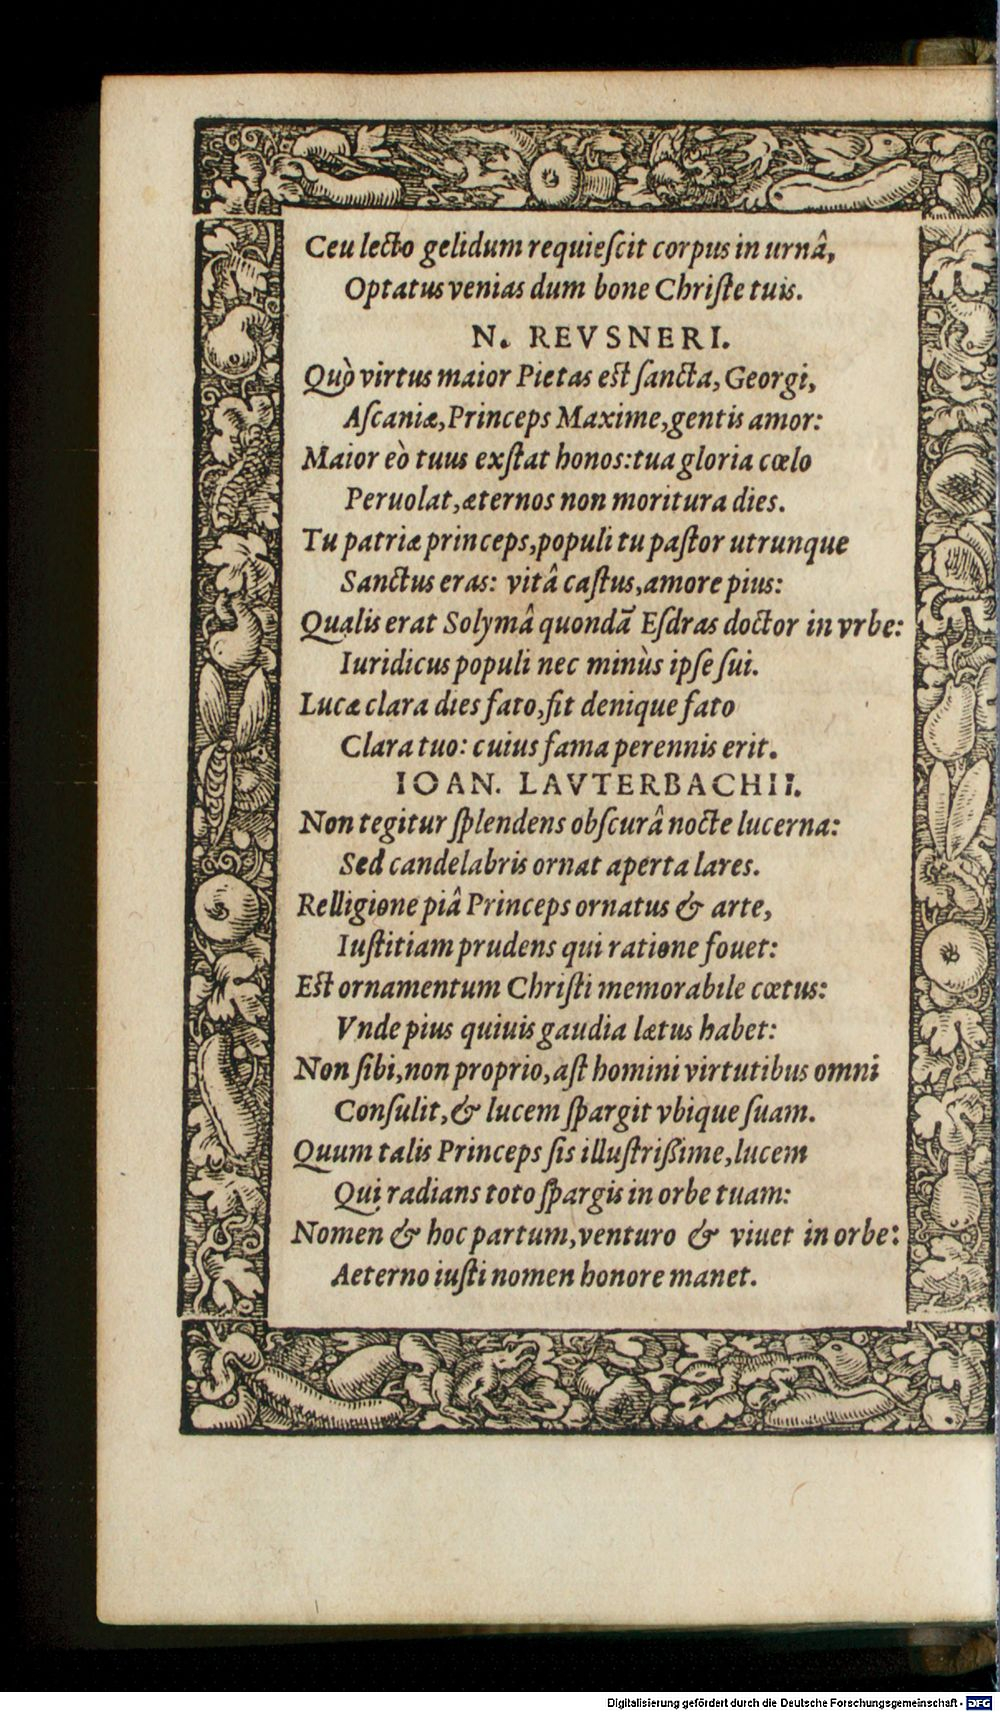 Ceu lecto gelidum requieſcit corpus in urnâ,
Optatus venias dum bone Chriſte tuis.
N. REVSNERI.
Quò virtus maior Pietas eſt ſancta, Georgi,
Aſcaniæ, Princeps Maxime, gentis amor:
Maior eò tuus exſtat honos: tua gloria cœlo
Peruolat, æternos non moritura dies.
Tu patriæ princeps, populi tu paſtor utrunque
Sanctus eras: vitâ caſtus, amore pius:
Qualis erat Solymâ quondā Eſdras doctor in vrbe:
Iuridicus populi nec minùs ipſe ſui.
Lucæ clara dies fato, fit denique fato
Clara tuo: cuius fama perennis erit.
IOAN. LAVTERBACHII.
Non tegitur ſplendens obſcurâ nocte lucerna:
Sed candelabris ornat aperta lares.
Relligione piâ Princeps ornatus & arte,
Iuſtitiam prudens qui ratione fouet:
Eſt ornamentum Chriſti memorabile cœtus:
Vnde pius quiuis gaudia lætus habet:
Non ſibi, non proprio, aſt homini virtutibus omni
Conſulit, & lucem ſpargit vbique ſuam.
Quum talis Princeps ſis illuſtriſſime, lucem
Qui radians toto ſpargis in orbe tuam:
Nomen & hoc partum, venturo & viuet in orbe:
Aeterno iuſti nomen honore manet.
Digitalisierung gefördert durch die Deutsche Forschungsgemeinschaft - DFG